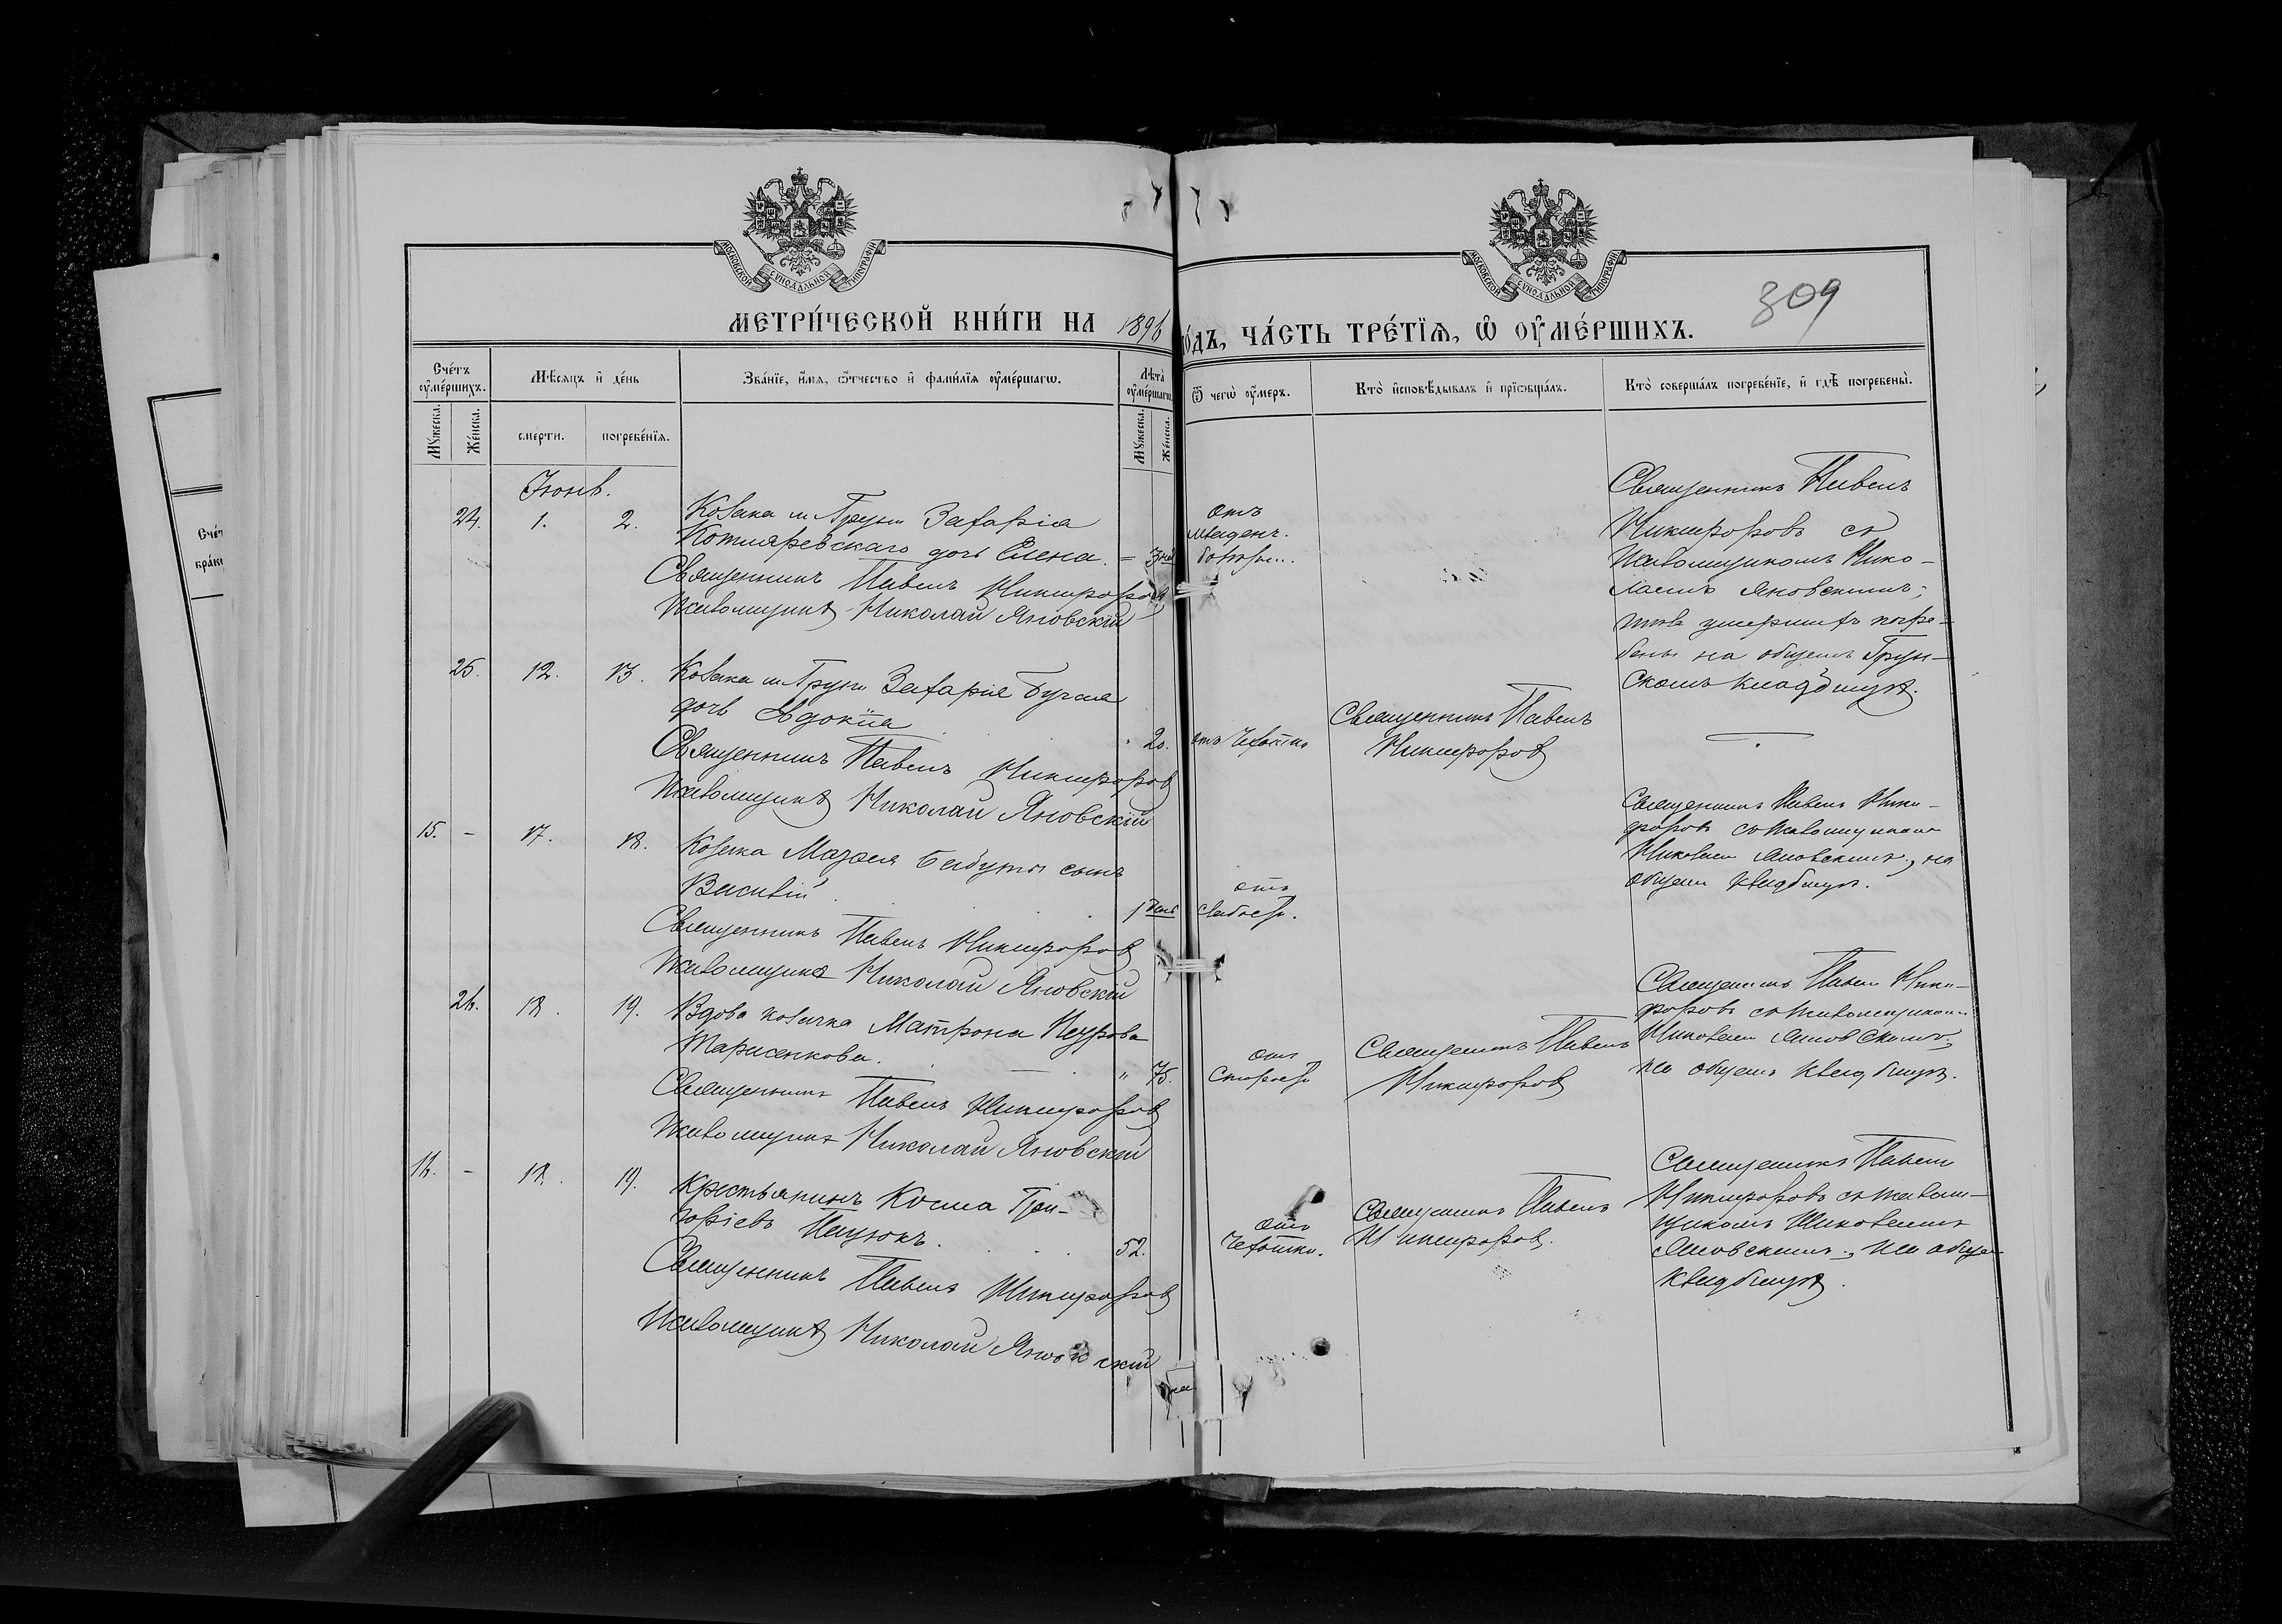 МОСКОВСКОЙ СѴНОДАЛЬНОЙ ТИПОГРАФІИ
МОСКОВСКОЙ СѴНОДАЛЬНОЙ ТИПОГРАФІИ
309
МЕТРИ́ЧЕСКОЙ КНИ́ГИ НА 1896
ГО́ДЪ, ЧА́СТЬ ТРЕ́ТЇѦ, Ѡ ОУ҆МЕ́РШИХЪ.
Сче́тъ оу҆ме́ршихъ.
Мѣ́сяцъ и҆ де́нь
Зва́нїе, и҆́мѧ, ѻ҆́тчество и҆ фами́лїѧ оу҆ме́ршагѡ.
Лѣ́та оу҆ме́ршагѡ.
Ѿ чегѡ̀ оу҆́меръ.
Кто̀ и҆сповѣ́дывалъ и҆ прїѡбща́лъ.
Кто̀ соверша́лъ погребе́нїе, и҆ гдѣ̀ погребены̀.
Мꙋ́жеска.
Же́нска.
сме́рти.
погребе́нїѧ.
Мꙋ́жеска.
Же́нска.
Іюнь.
24. 1. 2. Козака м. Груни Захарія
Котляревскаго дочь Елена. – 3
Священникъ Павелъ Никифоровъ
Псаломщикъ Николай Яновскій
отъ
младенч.
Священникъ Павелъ
Никифоровъ съ
Псаломщикомъ Нико-
лаемъ Яновскимъ;
умершихъ погре-
бены на общемъ Грун-
скомъ кладбищѣ.
25. 12. 13. Козака м. Груни Захарія Бугла
дочь Евдокія 20.
Священникъ Павелъ Никифоровъ
Псаломщикъ Николай Яновскій
отъ чахотки
Священникъ Павелъ
Никифоровъ
15. – 17. 18. Козака сынъ
Василій 1
Священникъ Павелъ Никифоровъ
Псаломщикъ Николай Яновскій
отъ
слабости.
Священникъ Павелъ Ники-
форовъ съ Псаломщикомъ
Николаемъ Яновскимъ, на
общемъ кладбищѣ.
26. 18. 19. Вдова козачка Матрона
" 75.
Священникъ Павелъ Никифоровъ
Псаломщикъ Николай Яновскій
отъ
старости
Священникъ Павелъ
Никифоровъ
Священникъ Павелъ Ники-
форовъ съ Псаломщикомъ
Николаемъ Яновскимъ,
на общемъ кладбищѣ.
16. – 18. 19. Крестьянинъ Косма Гри-
горіевъ Пацюкъ. 52.
Священникъ Павелъ Никифоровъ
Псаломщикъ Николай Яновскій
отъ
чахотки.
Священникъ Павелъ
Никифоровъ.
Священникъ Павелъ
Никифоровъ съ Псалом-
щикомъ Николаемъ
Яновскимъ, на общемъ
кладбищѣ.